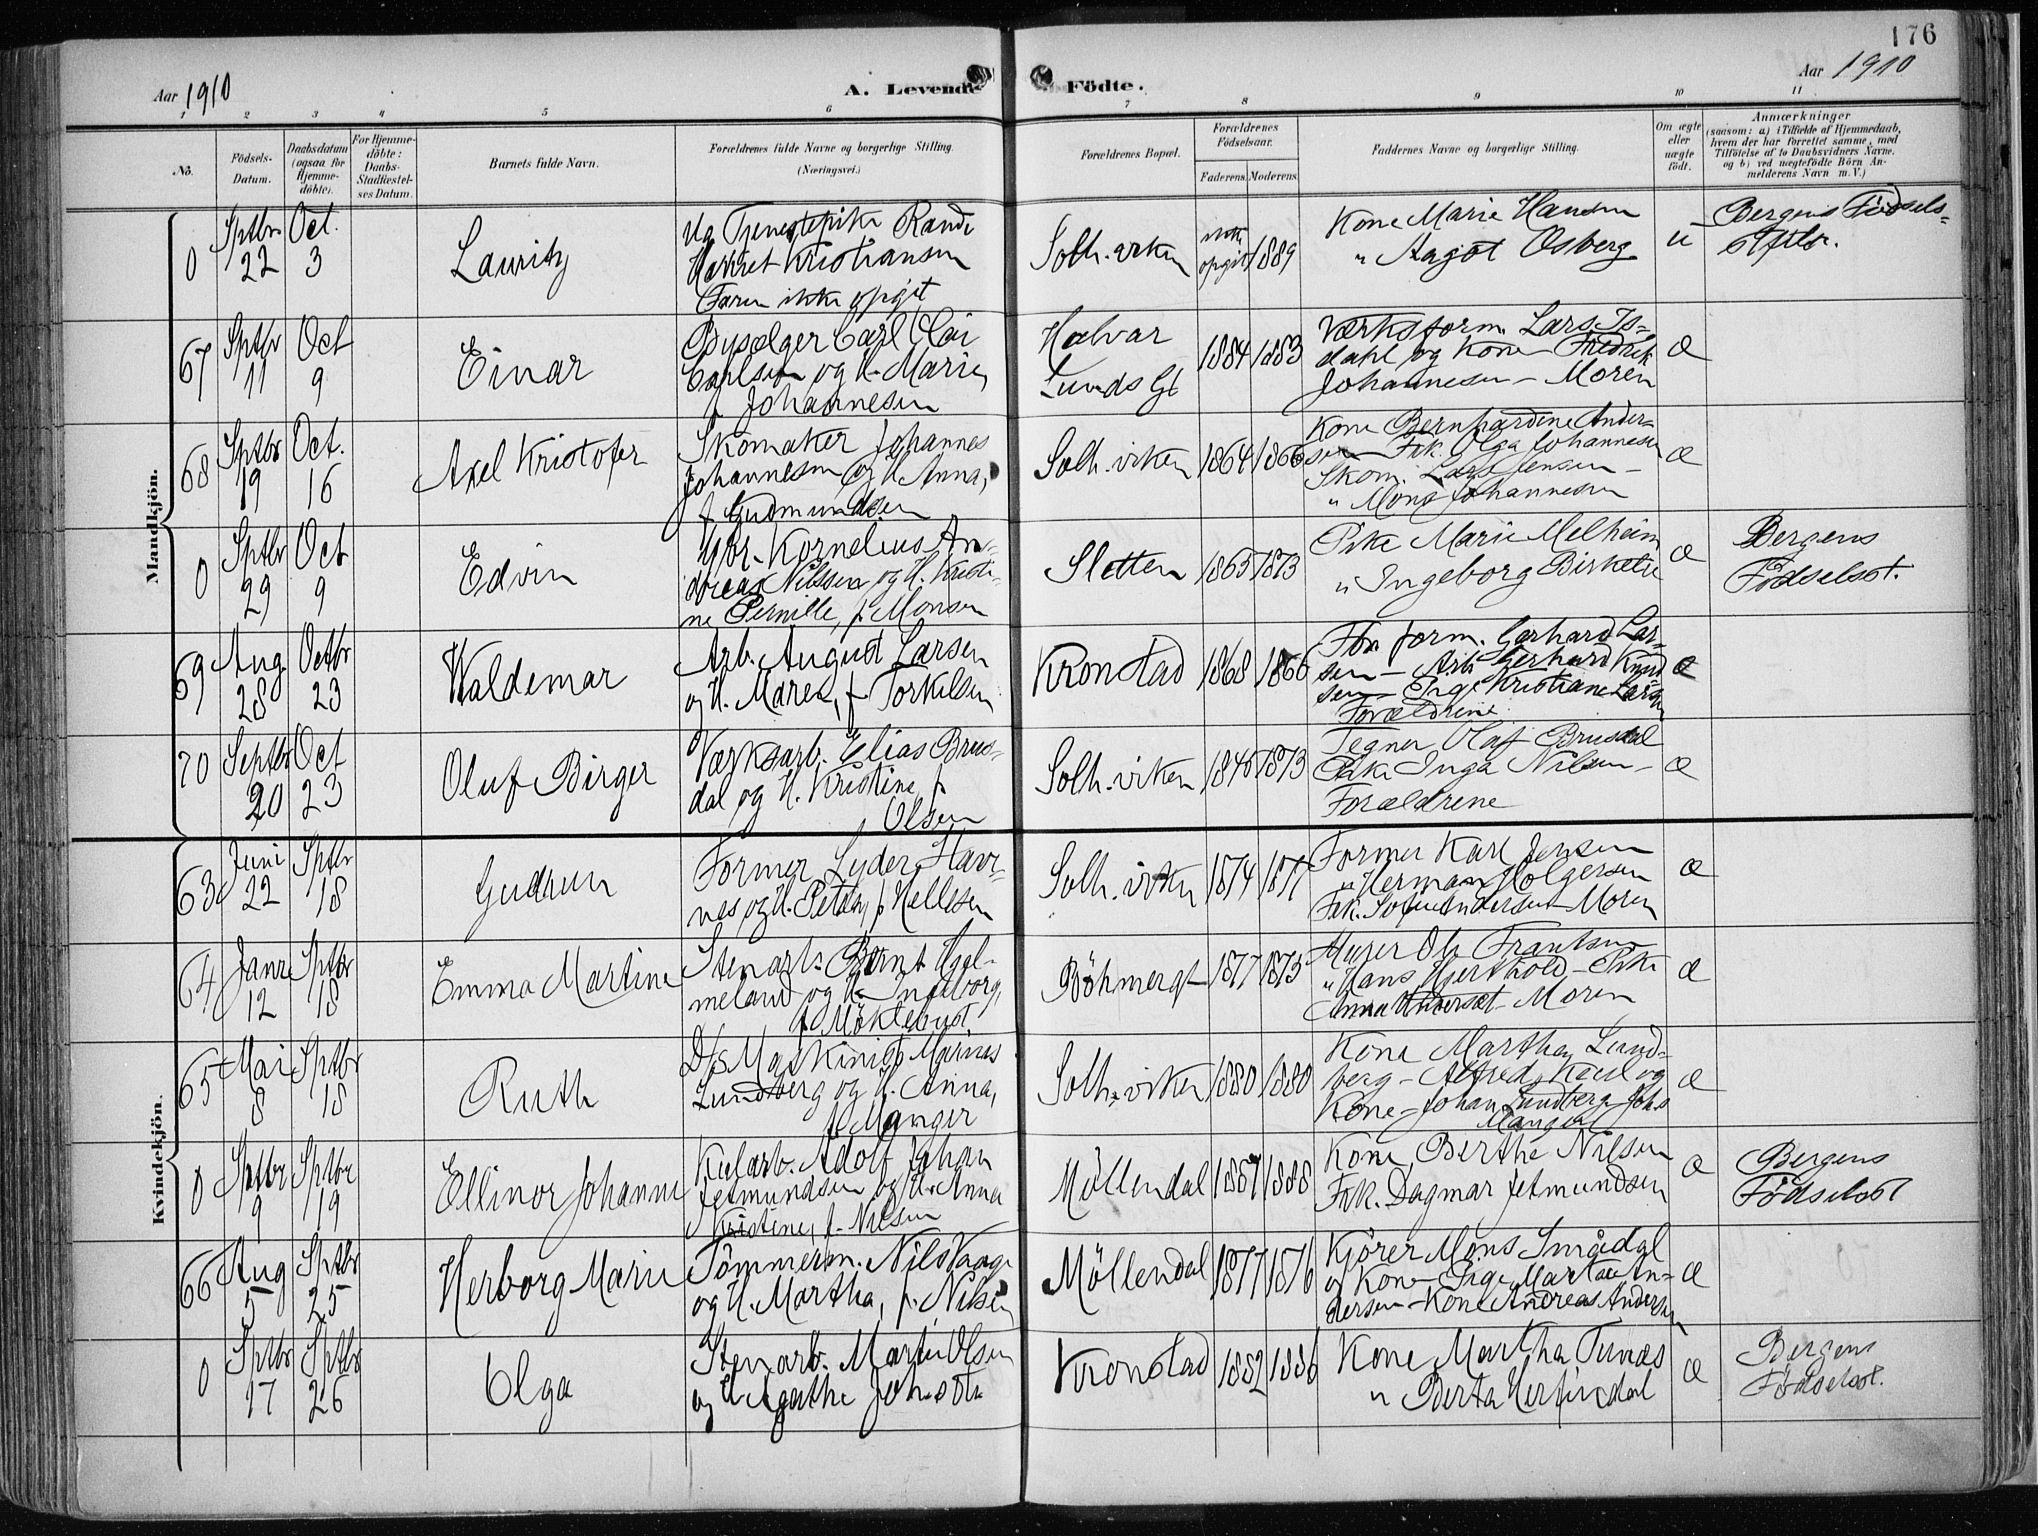 176
Aar 1910
A. Levende Födte.
Aar 1910
1 2 3 4 5 6 7 8 9 10 11
No.
Födsels-
Datum.
Daabsdatum
(ogsaa for
Hjemme-
döbte).
For Hjemme-
döbte:
Daabs-
Stadfæstel-
ses Datum.
Barnets fulde Navn.
Forældrenes fulde Navne og borgerlige Stilling.
(Næringsvei.)
Forældrenes Bopæl.
Forældrenes
Födselsaar.
Faderens. Moderens.
Faddernes Navne og borgerlige Stilling.
Om ægte
eller
uægte
födt.
Anmærkninger
(saasom: a) i Tilfælde af Hjemmedaab,
hvem der har forrettet samme, med
Tilföielse af to Daabsvidners Navne.
og b) ved uegtefödte Börn An-
melderens Navn m. V.)
Mandkjön.
0
Sptbr
22
Oct.
3
Lauritz
Ug Tjenestepike Randi
Kristiansen
Faren ikke opgit
Solh.virken
ikke
opgit
1889
Kone Marie Hansen
" Aagot Osberg
u
Bergens Fødsels-
stiftelse.
67
Sptbr
11
Oct
9
Einar
Bysælger Carl Olai
Carlsen og H. Marie,
f. Johannesen
Halvar
Lunds Gt
1884
1883
Værksform. Lars Is-
dahl og Kone Fredrik
Johannesen - Moren
æ
68
Sptbr
19
Oct.
16
Axel Kristofer
Skomaker Johannes
Johannesen og H. Anna,
f. Gudmundsen
Solh.virken
1864
1866
Kone Bernhardine Ander-
sen Frk. Olga Johannesen
Skom. Lars Jensen -
" Mons Johannesen
æ
0
Sptbr
29
Oct
9
Edvin
Kornelius An-
dreas Nilssen og H. Kristi-
ne Pernille, f. Monsen
Sletten
1865
1873
Pike Marie Melheim
" Ingeborg Birketve
æ
Bergens
Fødselsst.
69
Aug
28
Octbr
23
Waldemar
Arb. August Larsen
og H. Maren, f. Torkilsen
Kronstad
1868
1866
form. Gerhard Lar-
sen - Arb. Gerhard Knud
sen - Pige Kristiane Larsen
Forældrene
æ
70
Septbr
20
Oct
23
Oluf Birger
Værksarb. Elias Brus-
dal og H. Kristine, f.
Olsen
Solh.virken
1846
1873
Tegner Olaf Brusdal
Pike Inga Nilsen -
Forældrene
æ
Kvindekjön.
63
Juni
22
Sptbr
18
Gudrun
Former Lyder Havr-
nes og H. Petda, f. Hellesen
Solh.virken
1874
1877
Former Karl Jensen
" Herman Holgersen
Frk. Sofie Andersen - Moren
æ
64
Janr
12
Sptbr
18
Emma Martine
Stenarb. Bernt Hjel-
meland og H. Ingeborg,
f. Møklebust
Böhmergt
1877
1875
Murer Ole Frantsen
" Hans Hjerthold - Pike
Anna Underset - Moren
æ
65
Mai
8
Sptbr
18
Ruth
D/s Maskinist Magnus
Lundberg og H. Anna,
f. Manger
Solh.virken
1880
1880
Kone Martha Lund-
berg - Alfred Keul og
Kone - Johan Lundberg Johs
Manger
æ
0
Sptbr
9
Sptbr
19
Ellinor Johanne
Kularb. Adolf Johan
Jetmundsen og H. Anna
Kristine, f. Nilsen
Möllendal
1887
1888
Kone Berthe Nilsen
Frk. Dagmar Jetmundsen
æ
Bergens
Fødselsst
66
Aug
5
Sptbr
25
Herborg Marie
Tömmerm. Nils Vaage
og H. Martha, f. Nilsen
Möllendal
1877
1876
Kjörer Mons Smådal
og Kone Pige Martha An-
dersen - Kone Andreas Andersen
æ
0
Sptbr
17
Sptbr
26
Olga
Stenarb. Martin Olsen
og H. Agathe
Kronstad
1882
1886
Kone Martha Tunæs
" Berta Herfindal
æ
Bergens
Fødselsst.